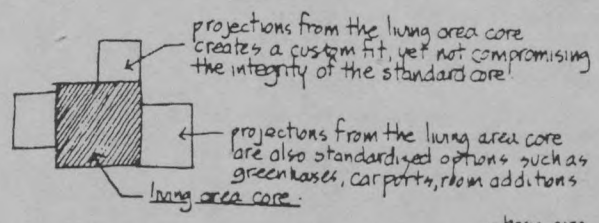 projections from the living area core
creates a custom fit, yet not compromising
the integrity of the standard core!
projections from the living area core
are also standardized options such as
greenhouses, carports, room additions
living area core.